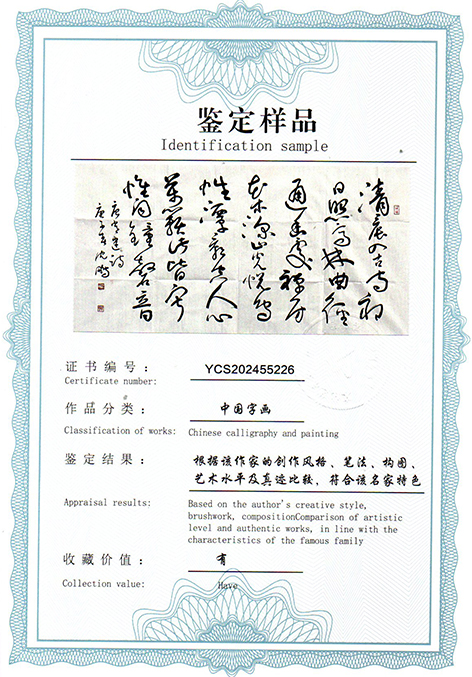 鉴定样品
Identification sample
清晨入古寺初
日照高林曲徑
通幽處禪房
花木深山光悦鳥
性潭影空人心
萬籟此皆寂
惟聞鐘磬音
唐常建詩
沈鹏
证书编号：
YCS202455226
Certificate number:
作品分类：
中国字画
Classification of works:
Chinese calligraphy and painting
鉴定结果：
根据该作家的创作风格、笔法、构图、
艺术水平及真迹比较，符合该名家特色
Appraisal results:
Based on the author's creative style,
brushwork, compositionComparison of artistic
level and authentic works, in line with the
characteristics of the famous family
收藏价值：
有
Collection value:
Have